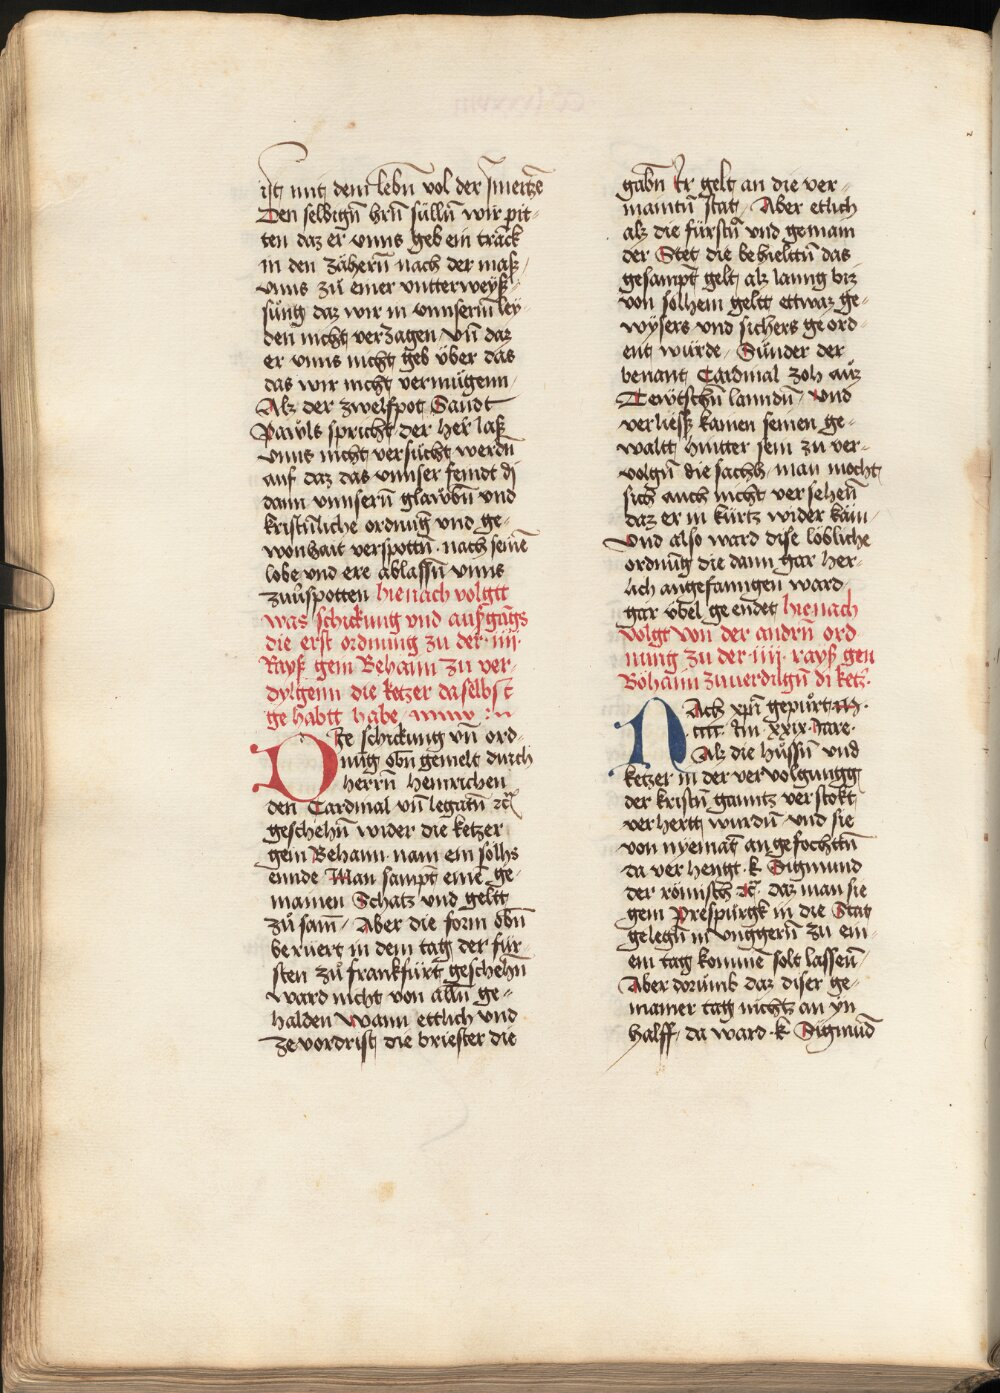 ist mit dem lebn̄ vol der smertzē
Den selbign̄ hrn̄ sülln̄ wir pit-
ten daz er vnns geb ein tranck
in den zähern̄ nach der maß
vnns zů einer vntterweyß-
sůng daz wir in vnnserm̄ ley
den nicht verzagen vn̄ daz
er vnns nicht geb über das
das wir nicht vermügenn
Alz der zwelfpot Sandt
Pawls spricht der her laß
vnns nicht versůcht werdn̄
auf daz das vnnser feindt di
dann vnnsern̄ glawbn̄ vnd
kristn̄liche ordnūg vnd ge-
wonhait verspottn̄ · nach seinē
lobe vnd ere ablassn̄ vnns
zuůspotten hienach volgtt
was schickung vnd aufgāgs
die erst ordnung zu der · iiii ·
Rayß gein Behaim zu ver-
dylgenn die ketzer daselbst
gehabtt habe
Die schickung vn̄ ord-
nūg obn̄ gemelt durch
herrn̄ heinrichen
den Cardinal vn̄ legatn̄ ꝛc̄
geschehn̄ wider die ketzer
gein Behaim · nam ein solhs
ennde Man sampt einē ge-
mainen Schatz vnd geltt
zů sam̄ · Aber die form obn̄
berüert in dem tag der für-
sten zů franckfürt geschehn̄
ward nicht von alln̄ ge-
halden wann ettlich vnd
zevordrist die briester die
gabn̄ Ir gelt an die ver-
maintn̄ stat · Aber etlich
alz die fürstn̄ vnd gemain
der Stet die behielttn̄ das
gesampt gelt alz lanng biz
von solhem geltt ettwaz ge-
wysers vnd sichers geord-
ent würde · Sünder der
benant Cardinal zoh auz
Tewtschn̄ lanndn̄ · vnd
verliesß kainen seinen ge-
waltt hintter sein zu ver-
volgn̄ die sachh · man mocht
sich auch nicht versehen̄
daz er in kürtz wider käm
Vnd also ward dise löbliche
ordnūg die dann gar her-
lich angefanngen ward
gar vbel geendet hienach
volgt von der andrn̄ ord
nung zu der · iiii · rayß gen
Böhaim zuuerdilgn̄ di ketz̄
Nach xp̄i gepůrt M ·
cccc · im xxix · Jare ·
Alz die hüssn̄ vnd
ketzer in der vervolgungg
der kristn̄ ganntz verstokt
verhertt wurdn̄ · vnd sie
von nyemāt angefochttn̄
da verhengt · k Sigmund
der römisch ꝛc̄ · daz man sie
gein Prespurgk in die Stat
gelegn̄ in vnggern̄ zu ein-
em tag kommē solt lassen̄
Aber dorūmb daz diser ge-
mainer tag nichtz an yn
halff · da ward · k Sigmūd